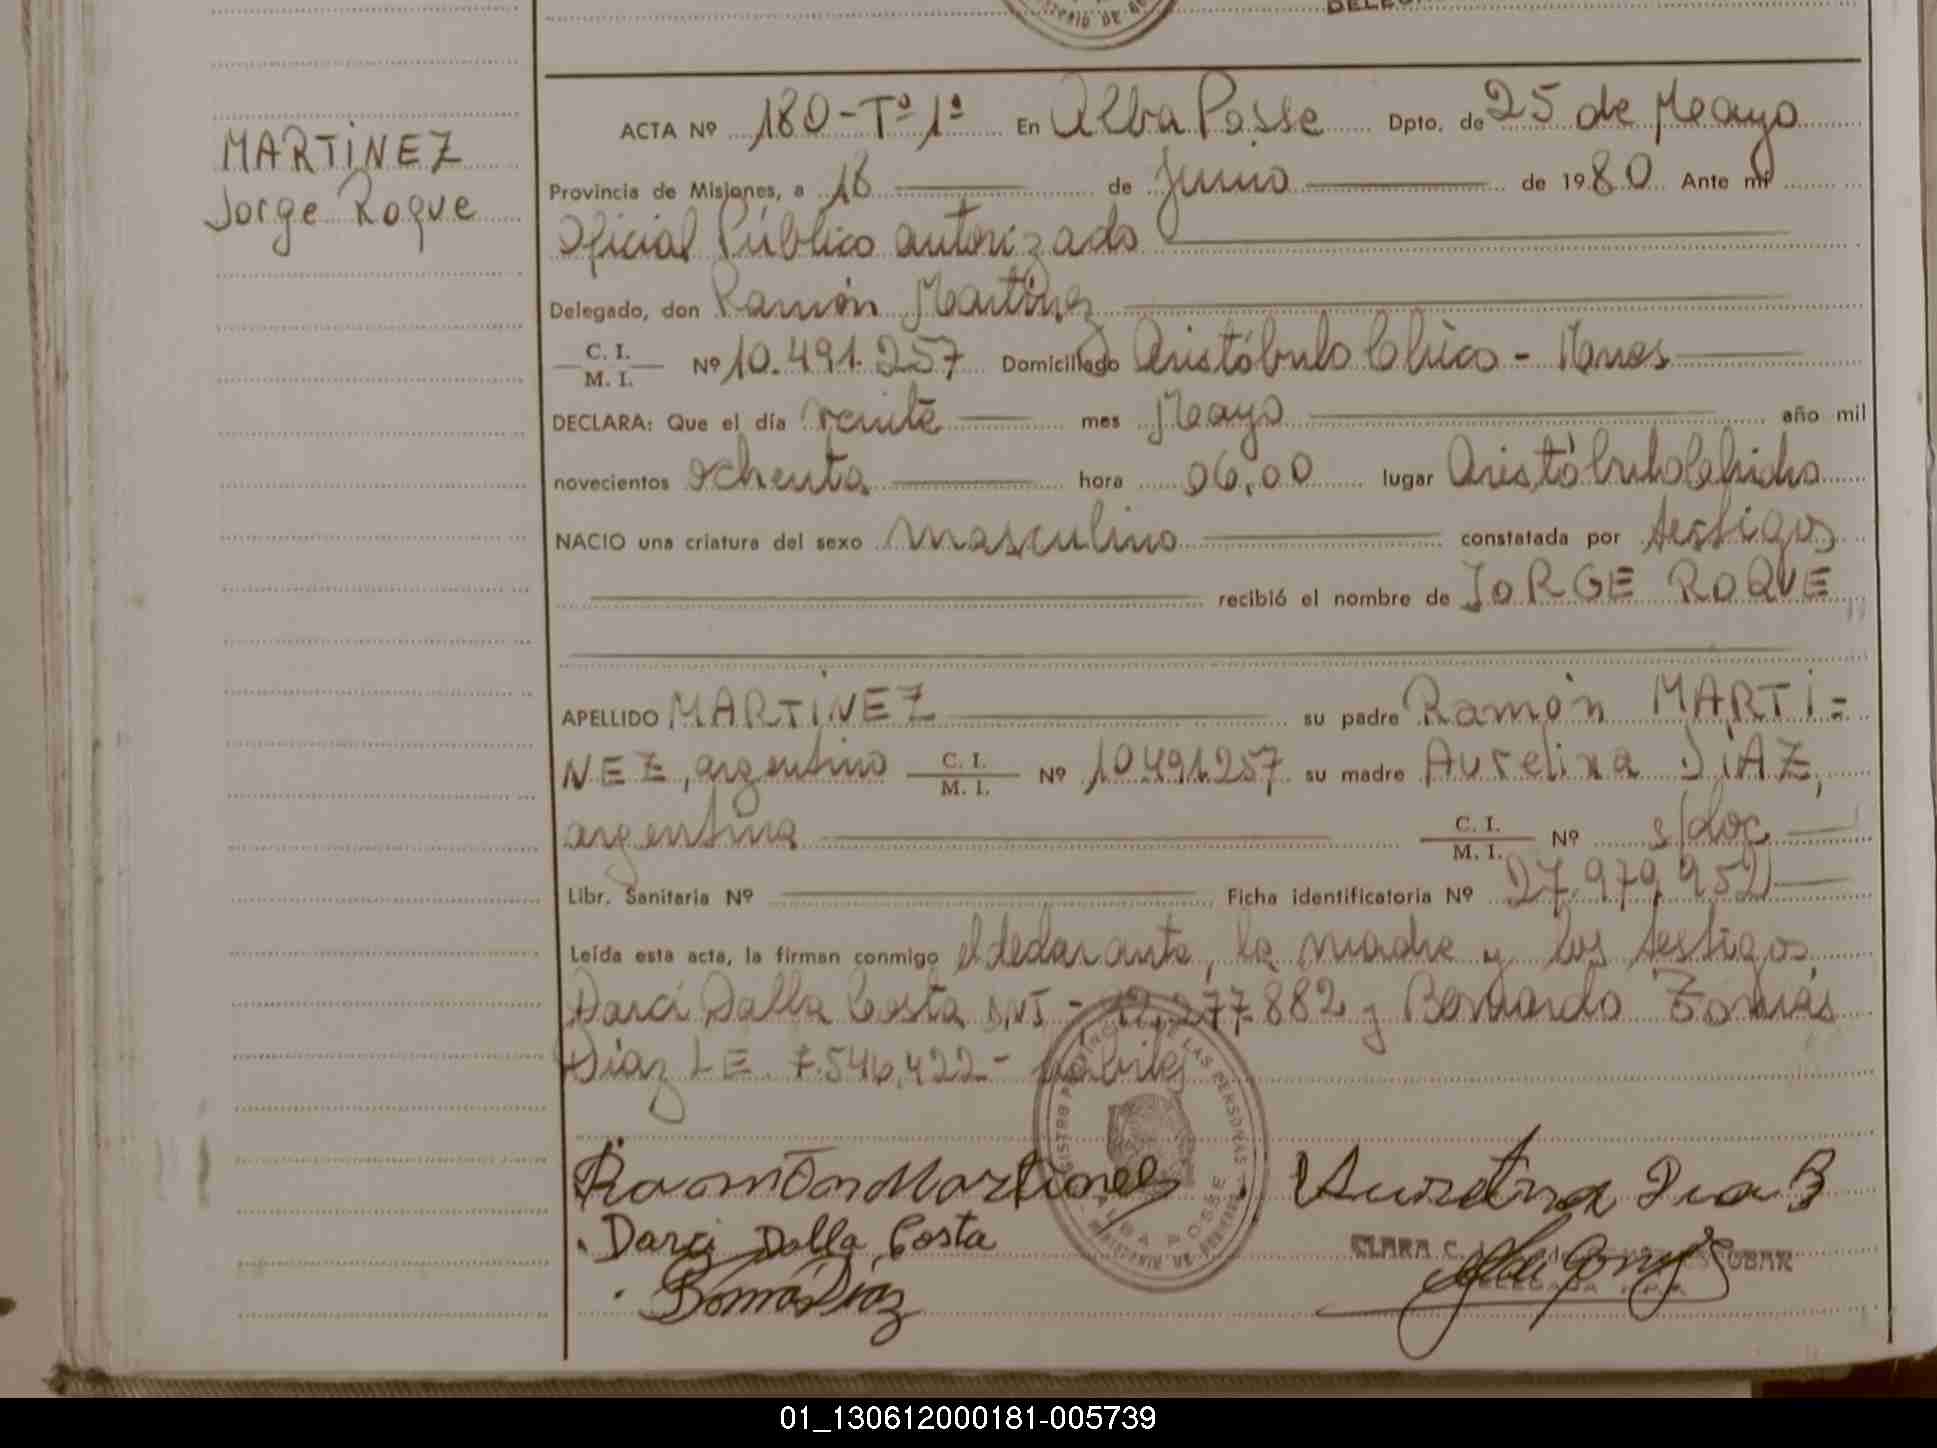 MINISTERIO DE GO
DELEG
MARTINEZ
Jorge Roque
ACTA Nº 180-Tº 1º En Alba Posse Dpto. de 25 de Mayo
Provincia de Misiones, a 18 de junio de 1980 Ante mí
Oficial Público autorizado
Delegado, don Ramón Martínez
C. I. M. I. Nº 10.491.257 Domiciliado Aristóbulo Chico - Mnes
DECLARA: Que el día veinte mes Mayo año mil
novecientos ochenta hora 06,00 lugar Aristóbulo Chico
NACIO una criatura del sexo masculino constatada por testigos
recibió el nombre de JORGE ROQUE
APELLIDO MARTINEZ su padre Ramón MARTI=
NEZ, argentino C. I. M. I. Nº 10.491.257, su madre Aurelina DIAZ,
argentina C. I. M. I. Nº s/doc
Libr. Sanitaria Nº Ficha identificatoria Nº 27.979.952
Leída esta acta, la firman conmigo el declarante, la madre y los testigos
Darci Dalla Costa DNI - 12.277.882 y Bernardo Tomás
Diaz LE. 7.546.422 - hábiles
Ramón Martinez Aurelina Diaz
Darci Dalla Costa
CLARA C. ESCOBAR
Tomás Diaz
DELEGADA
REGISTRO PROVINCIAL DE LAS PERSONAS
ALBA POSSE
MINISTERIO DE GOBIERNO
01_130612000181-005739